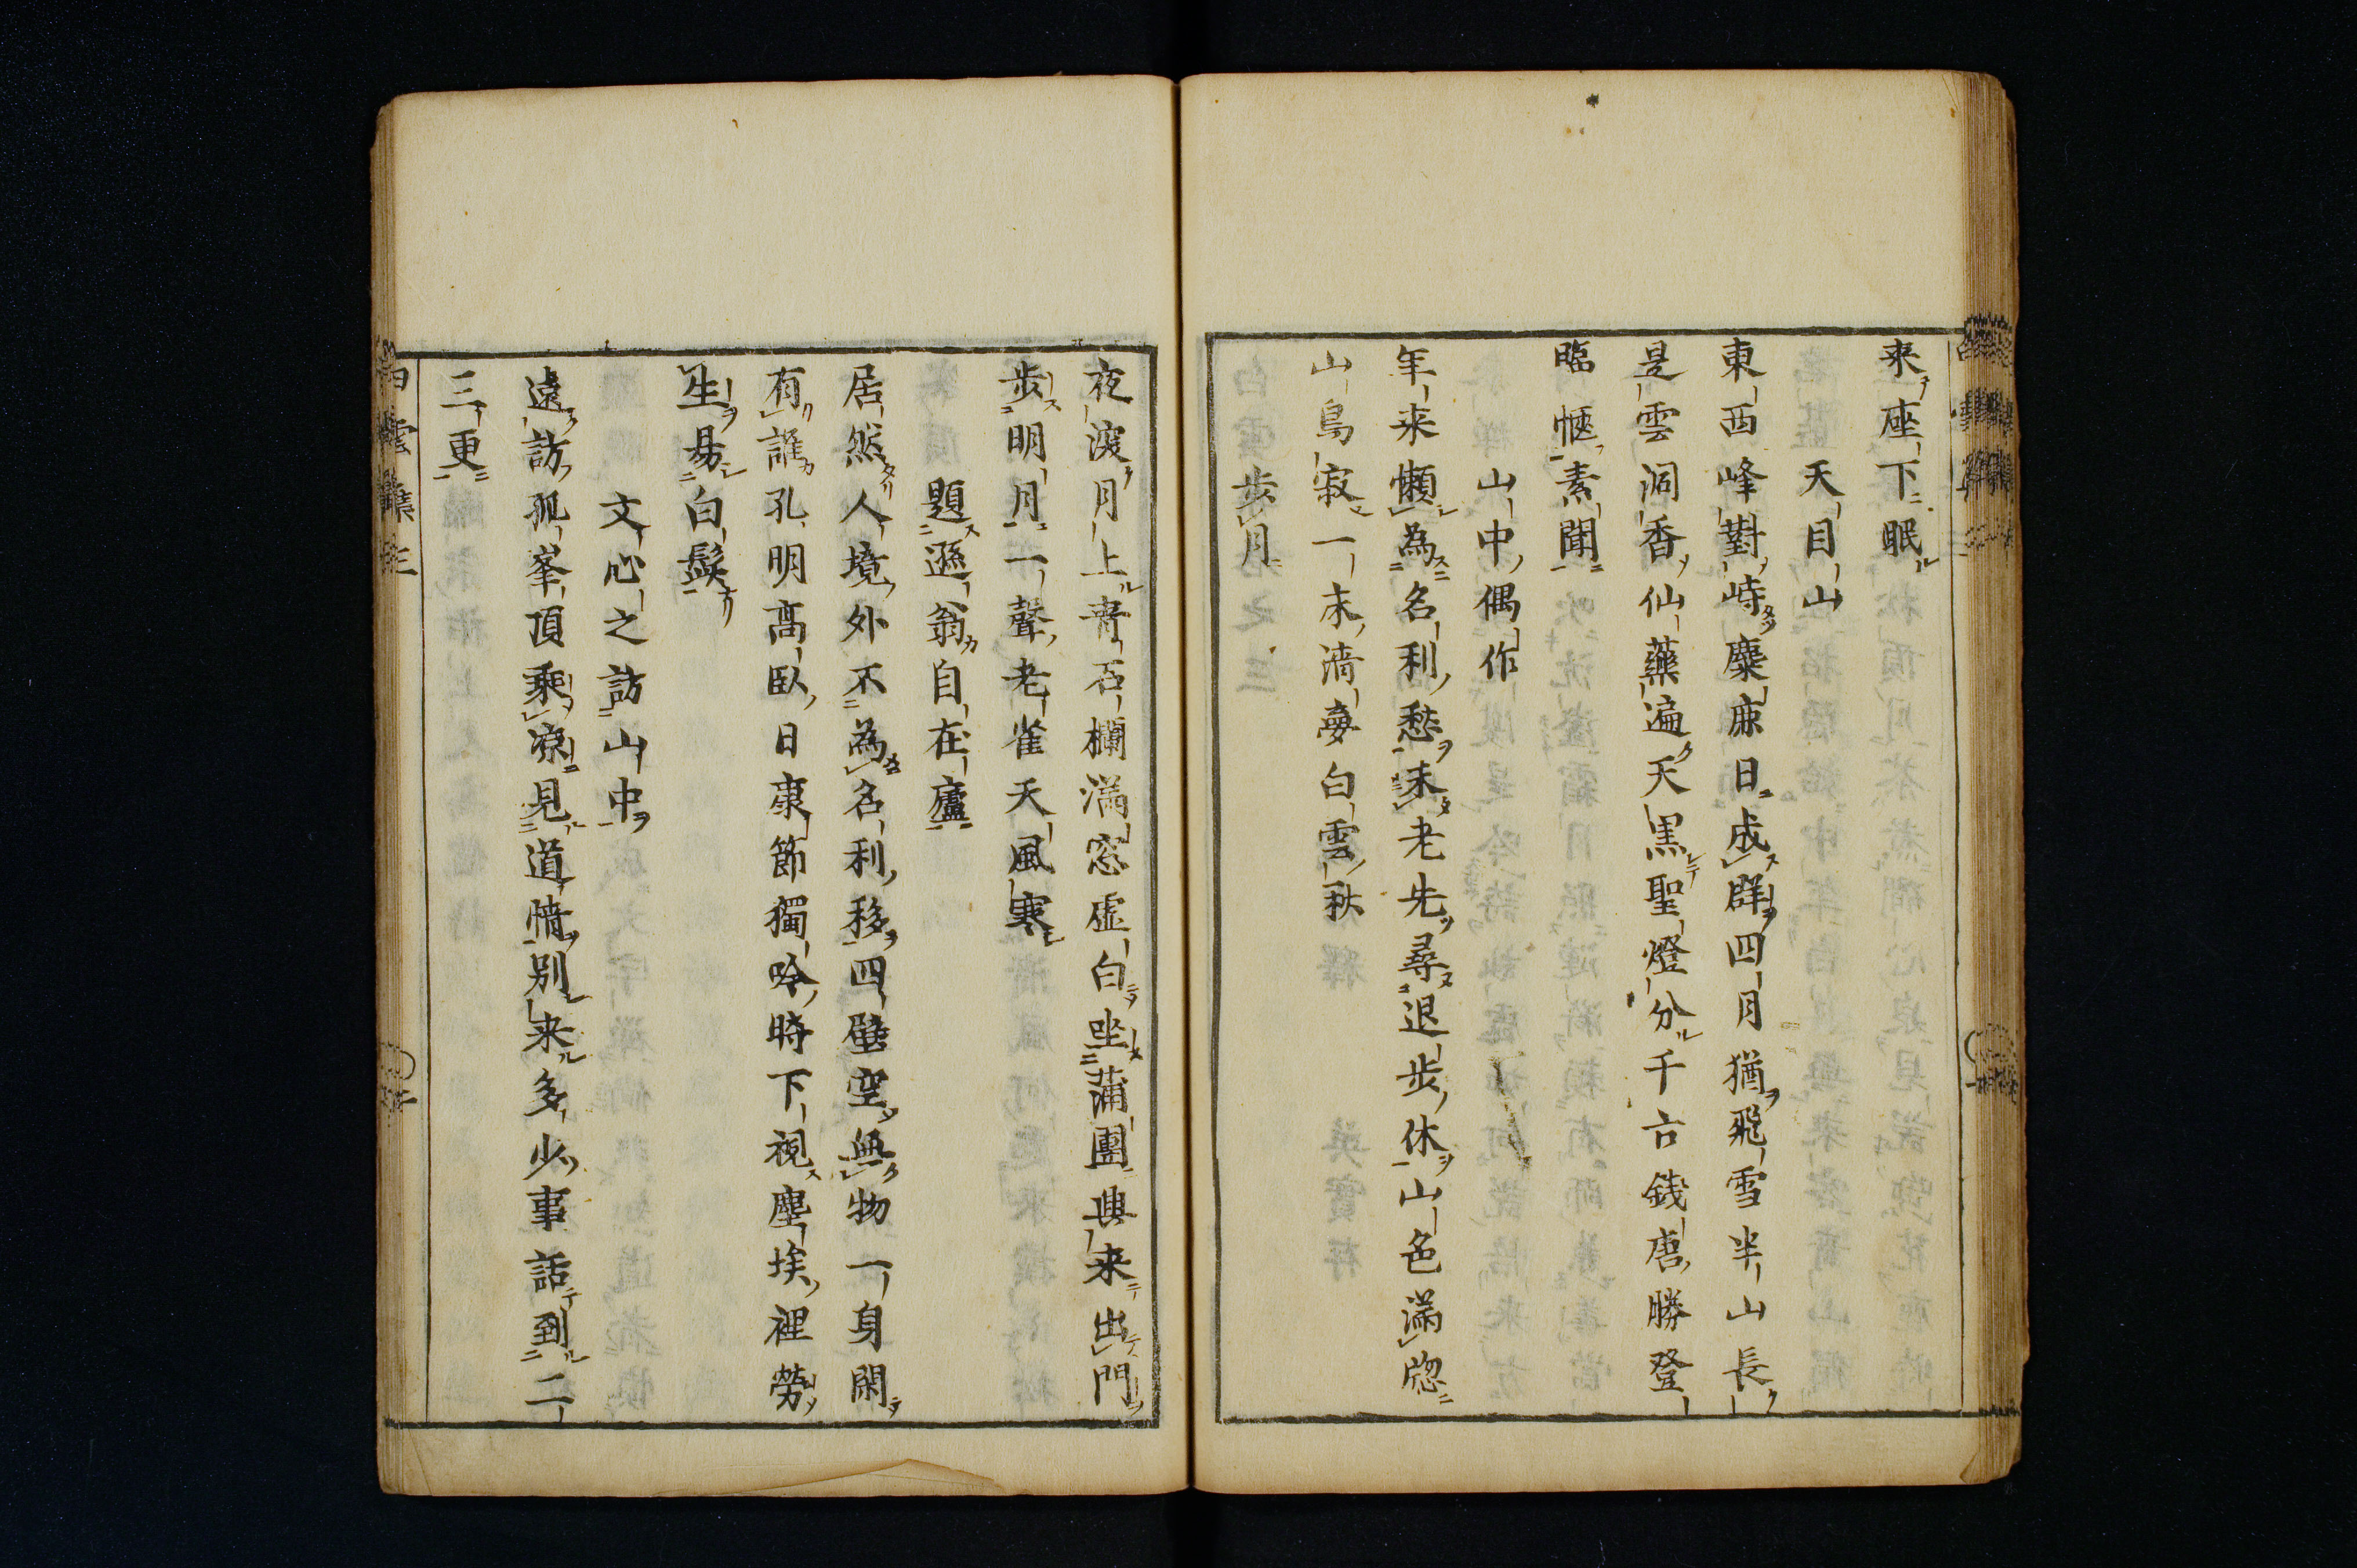 来座下眠
天目山
東西峰對峙麋鹿日成群四月猶飛雪半山長
是雲洞香仙藥遍天黒聖燈分千古錢唐勝登
臨愜素聞
山中偶作
年来懶為名利愁未老先尋退步休山色滿窓
山鳥寂一床清夢白雲秋
步月
夜深月上青石欄滿窓虚白坐蒲團興来出門
步明月一聲老雀天風寒
題遜翁自在廬
居然人境外不為名利移四壁空無物一身閑
有誰孔明高臥日康節獨吟時下視塵埃裡勞
生易白髮
文心之訪山中
遠訪孤峯頂乘涼見道情别来多少事話到二
三更
白雲集三